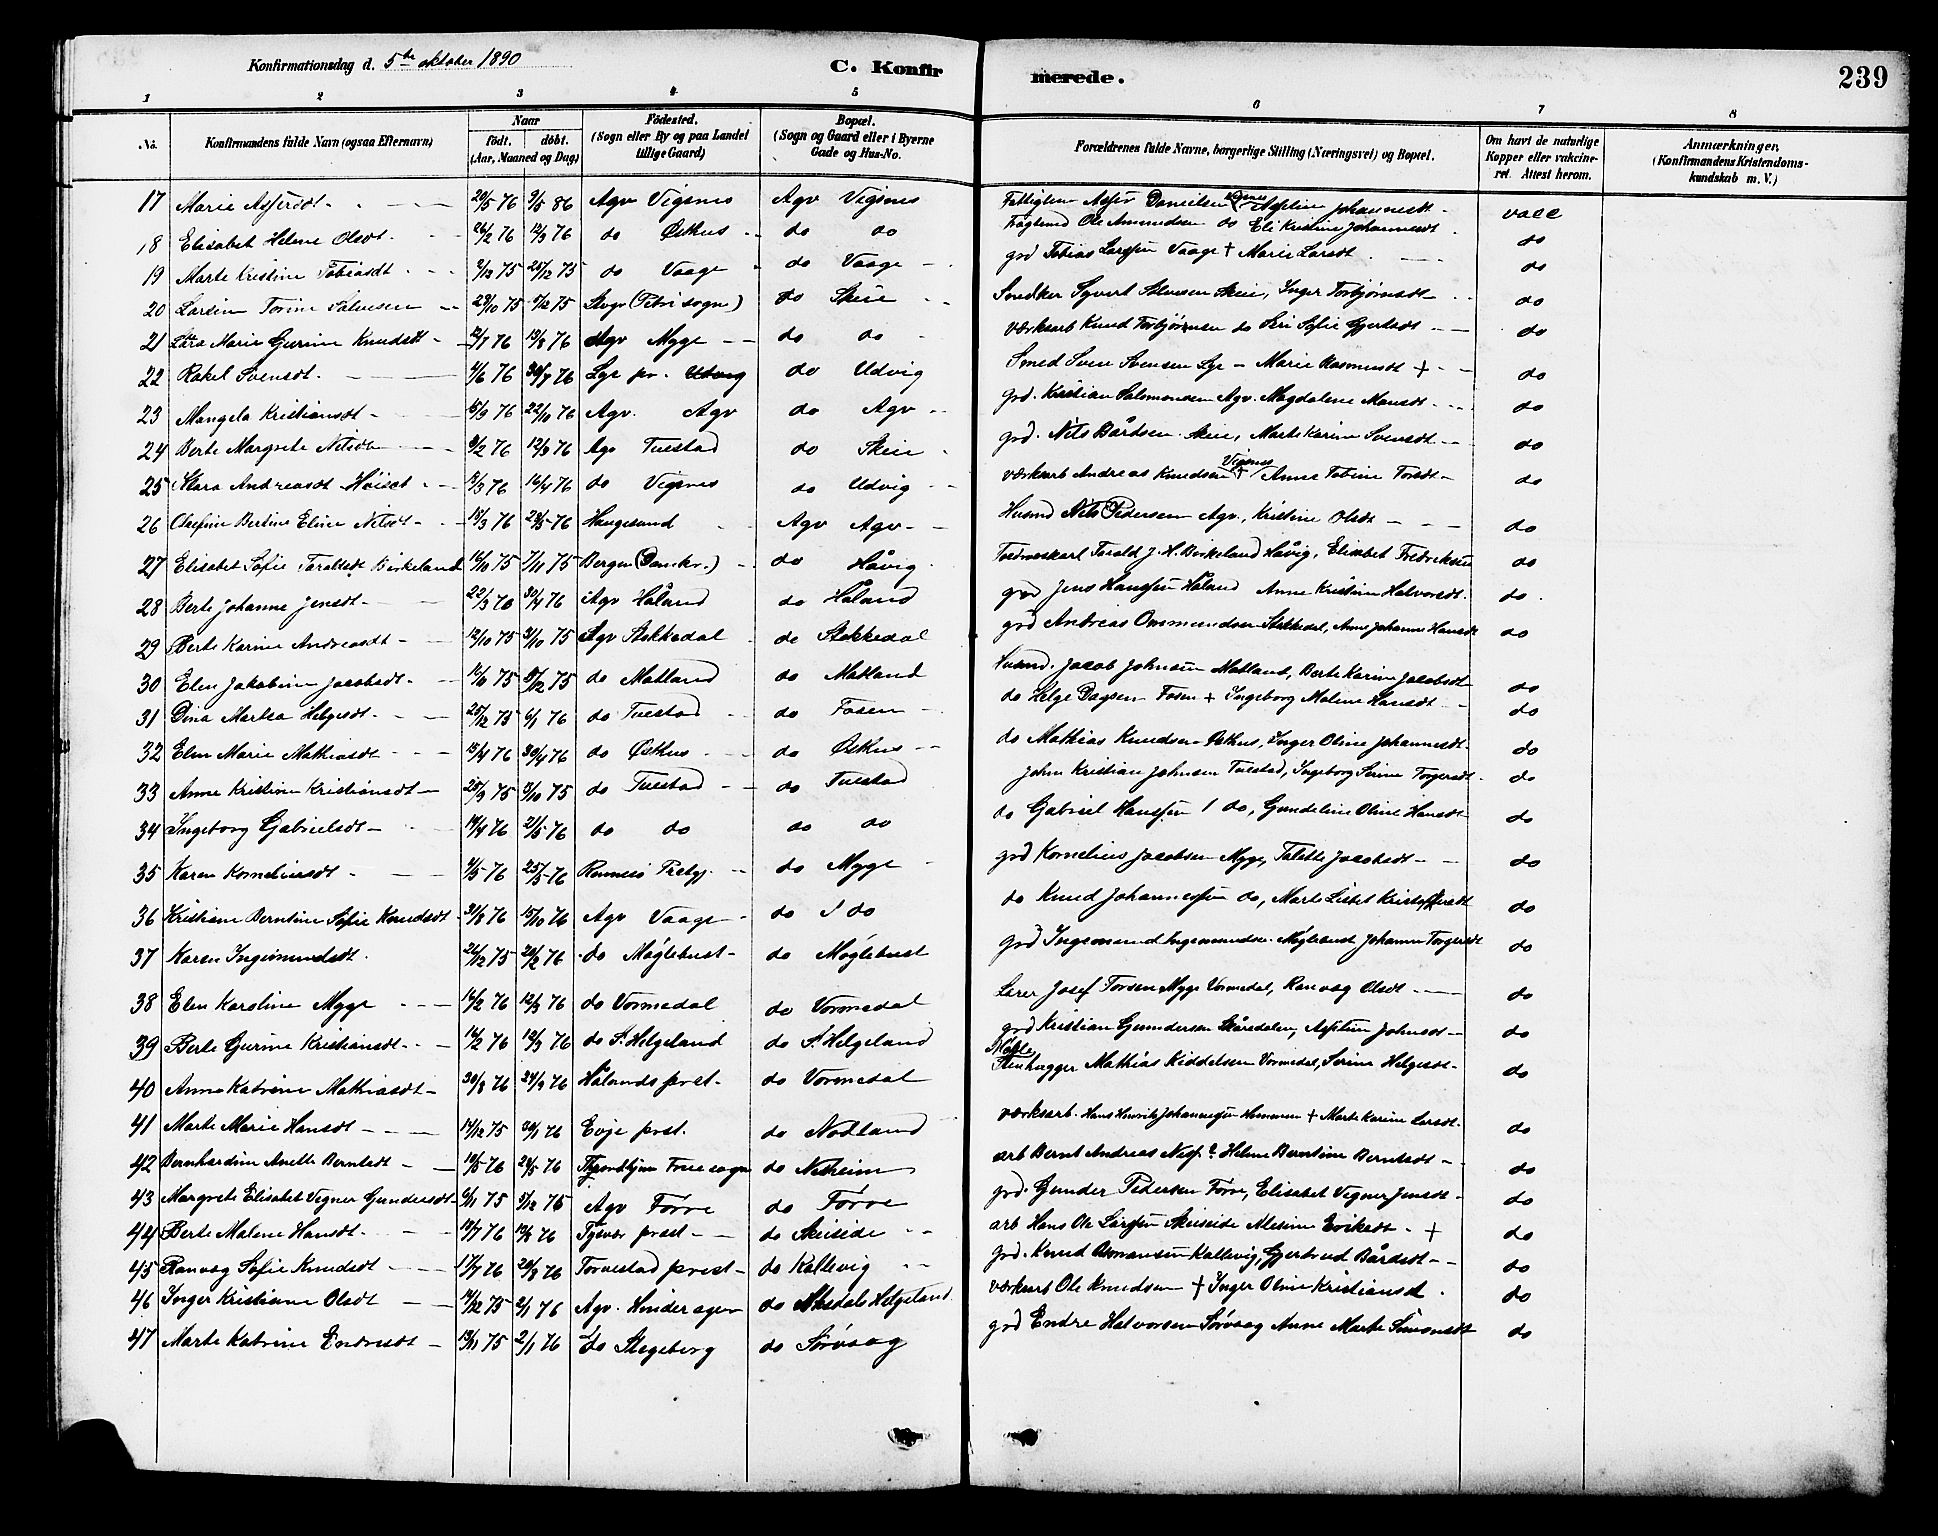 Konfirmationsdag d. 5te oktober 1890 C. Konfirmerede. 239
1 2 3 4 5 6 7 8
No. Konfirmandens fulde Navn (ogsaa Efternavn) Naar födt. döbt. (Aar, Maaned og Dag) Födested. (Sogn eller By og paa Landet tillige Gaard) Bopæl. (Sogn og Gaard eller i Byerne Gade og Hus-No. Forældrenes fulde Navne, borgerlige Stilling (Næringsvei) og Bopæl. Om havt de naturlige Kopper eller vakcineret. Attest herom. Anmærkninger. (Konfirmandens Kristendomskundskab m. V.)
17 Marie 20/5 76 9/5 86 Agv Vigsnes Agv Vigsnes Danielsen Johannesdt vacc
18 Elisabet Helene Olsdt 26/2 76 12/3 76 do Østhus do do Ole Amundsen do Eli Kristine Johannesdt do
19 Marte Kristine Tobiasdt 2/12 75 26/12 75 do Vaage do Vaage grd Tobias Larssen Vaage + Marie Larsdt do
20 Larsine Torine Salvesen 29/10 75 5/12 75 (Petri sogn) do Skeie Snedker Syvert Salvesen Skeie, Inger Torbjørnsdt do
21 Lara Marie Gurine Knudsdt 12/7 76 13/8 76 Agv Myge do do værksarb Knud Torbjörnsen do Siri Sofie Gjertsdt do
22 Rakel Svensdt 4/6 76 30/7 76 do Udvig Smed Sven Svensen Marie Rasmusdt + do
23 Mangela Kristiansdt 15/9 76 22/10 76 Agv. Agv do Agv grd. Kristian Salomonsen Agv. Magdalene Mansdt do
24 Berte Margrete Nilsdt 9/2 76 12/3 76 Agv Tuestad do Skeie grd. Nils Bårdsen Skeie, Marte Karine Svensdt do
25 Klara Andreasdt Höiset 12/3 76 16/4 76 do Vigsnes do Udvig værksarb Andreas Knudsen Vigsnes + Anne Tobine Torsdt do
26 Olefine Bertine Eline Nilsdt 18/3 76 28/5 76 Haugesund Agv Agv Husmd Nils Pedersen Agv., Kristine Olsdt do
27 Elisabet Sofie Taraldsdt Birkeland 16/10 75 7/11 75 Bergen (Domkr.) do Håvig Tarald J. H. Birkeland Håvig, Elisabet Fredriksen do
28 Berte Johanne Jensdt 22/3 76 30/4 76 Agv Håland do Håland grd Jens Hanssen Håland Anne Kristine Halvorsdt do
29 Berte Karine Andreasdt 12/10 75 31/10 75 Agv Stokkedal do Stokkedal grd Andreas Ommundsen Stokkedal, Anne Johanne Hansdt do
30 Elen Jakobine Jacobsdt 16/11 75 5/12 75 do Matland do Matland Husmd. Jacob Johnsen Matland, Berte Karine Jacobsdt do
31 Dina Martea Helgesdt 25/12 75 6/1 76 do Tuestad do Fosen do Helge Dagsen Fosen + Ingeborg Malene Hansdt do
32 Elen Marie Mathiasdt 15/4 76 30/4 76 do Østhus do Østhus do Mathias Knudsen Østhus, Inger Oline Johannesdt do
33 Anne Kristine Kristiansdt 25/9 75 3/10 75 do Tuestad do Tuestad John Kristian Johnsen Tuestad, Ingeborg Serine Torgersdt do
34 Ingeborg Gabrielsdt 14/4 76 21/5 76 do do do do do Gabriel Hanssen do, Gundeline Oline Hansdt do
35 Karen Korneliusdt 4/5 76 25/5 76 Rennesö do Myge grd Kornelius Jacobsen Myge, Talette Jacobsdt do
36 Kristiane Berntine Sofie Knudsdt 31/8 76 15/10 76 Agv Vaage do do do Knud Johannessen do, Marte Lisbet Kristoffersdt do
37 Karen Ingemundsdt 26/12 75 20/2 76 do Møglebust do Møglebust grd Ingemund Ingemundsen Møglebust Johanne Torgersdt do
38 Elen Karoline Myge 16/2 76 12/3 76 do Vormedal do Vormedal Lærer Josef Torsen Myge Vormedal, Ranvag Olsdt do
39 Berte Gurine Kristiansdt 16/2 76 12/3 76 do S. Helgeland do S. Helgeland grd Kristian Gundersen Skåredalen, Johnsdt do
40 Anne Katrine Mathiasdt 30/8 76 24/9 76 Hålands prest. do Vormedal Stenhugger Mathias Kiddelsen Vormedal, Serine Helgesdt do
41 Marte Marie Hansdt 14/12 75 30/1 76 Evje prst. do Nodland værksarb. Hans Henrik Johannessen + Marte Karine Larsdt do
42 Bernhardine Anette Berntsdt 10/5 76 28/5 76 Throndhjem Frue sogn do Nesheim arb Bernt Andreas Helene Berntine Berntsdt do
43 Margrete Elisabet Vegner Gundersdt 6/11 75 5/12 75 Agv Førve do Førve grd. Gunder Pedersen Førve, Elisabet Vegner Jensdt do
44 Berte Malene Hansdt 18/7 76 13/8 76 Tysvær prest do Skeiseide arb Hans Ole Larssen Skeiseide Alesine Eriksdt + do
45 Ranvag Sofie Knudsdt 17/7 76 20/8 76 Torvestad prest do Kallevig grd. Knud Kallevig, Gjertrud Bårdsdt do
46 Inger Kristiane Olsdt 14/12 75 2/1 76 Agv. Hinderager do Aksdals Helgeland værksarb Ole Knudsen + Inger Oline Kristiansdt do
47 Marte Katrine Endresdt 13/11 75 2/1 76 do Stegeberg do Sørvaag grd Endre Halvorsen Sørvaag Anne Marte Simonsdt do